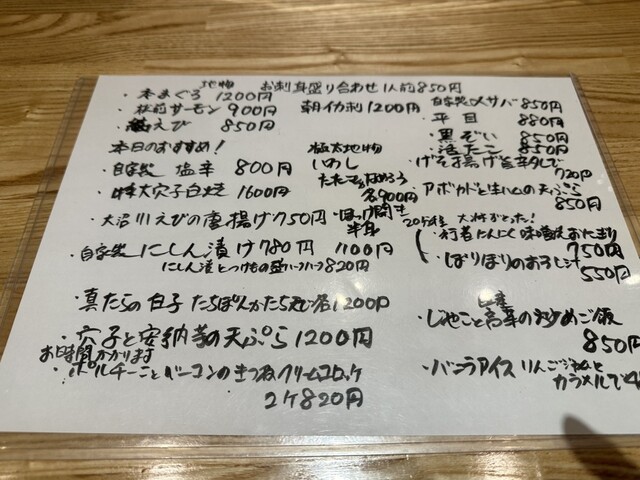 地物 お刺身盛り合わせ1人前850円
・本まぐろ 1200円
・松前サーモン 900円
えび 850円
朝イカ刺 1200円
自家製〆サバ 850円
・平目 880円
・黒ぞい 850円
・活たこ 850円
本日のおすすめ!
・自家製 塩辛 800円
・特大穴子白焼 1600円
・大沼川えびの唐揚げ750円
極太地物
いわし
たたき なめろう
各900円
・ほっけ開き
半身
1100円
げそ揚げ
720円
・アボカドと生ハムの天ぷら
850円
20分程
・行者にんにく味噌おにぎり
750円
・ぱりぱりの
550円
・自家製にしん漬け780円
にしん漬とつけもの盛ハーフハーフ820円
・真たらの白子 たちぽんかたち天ぷら1200円
・穴子と安納芋の天ぷら1200円
お時間かかります
・ポルチーニとベーコンのきつねクリームコロッケ
2ケ820円
・じゃこと高菜の炒めご飯
850円
・バニラアイス りんごジャムと
カラメルで